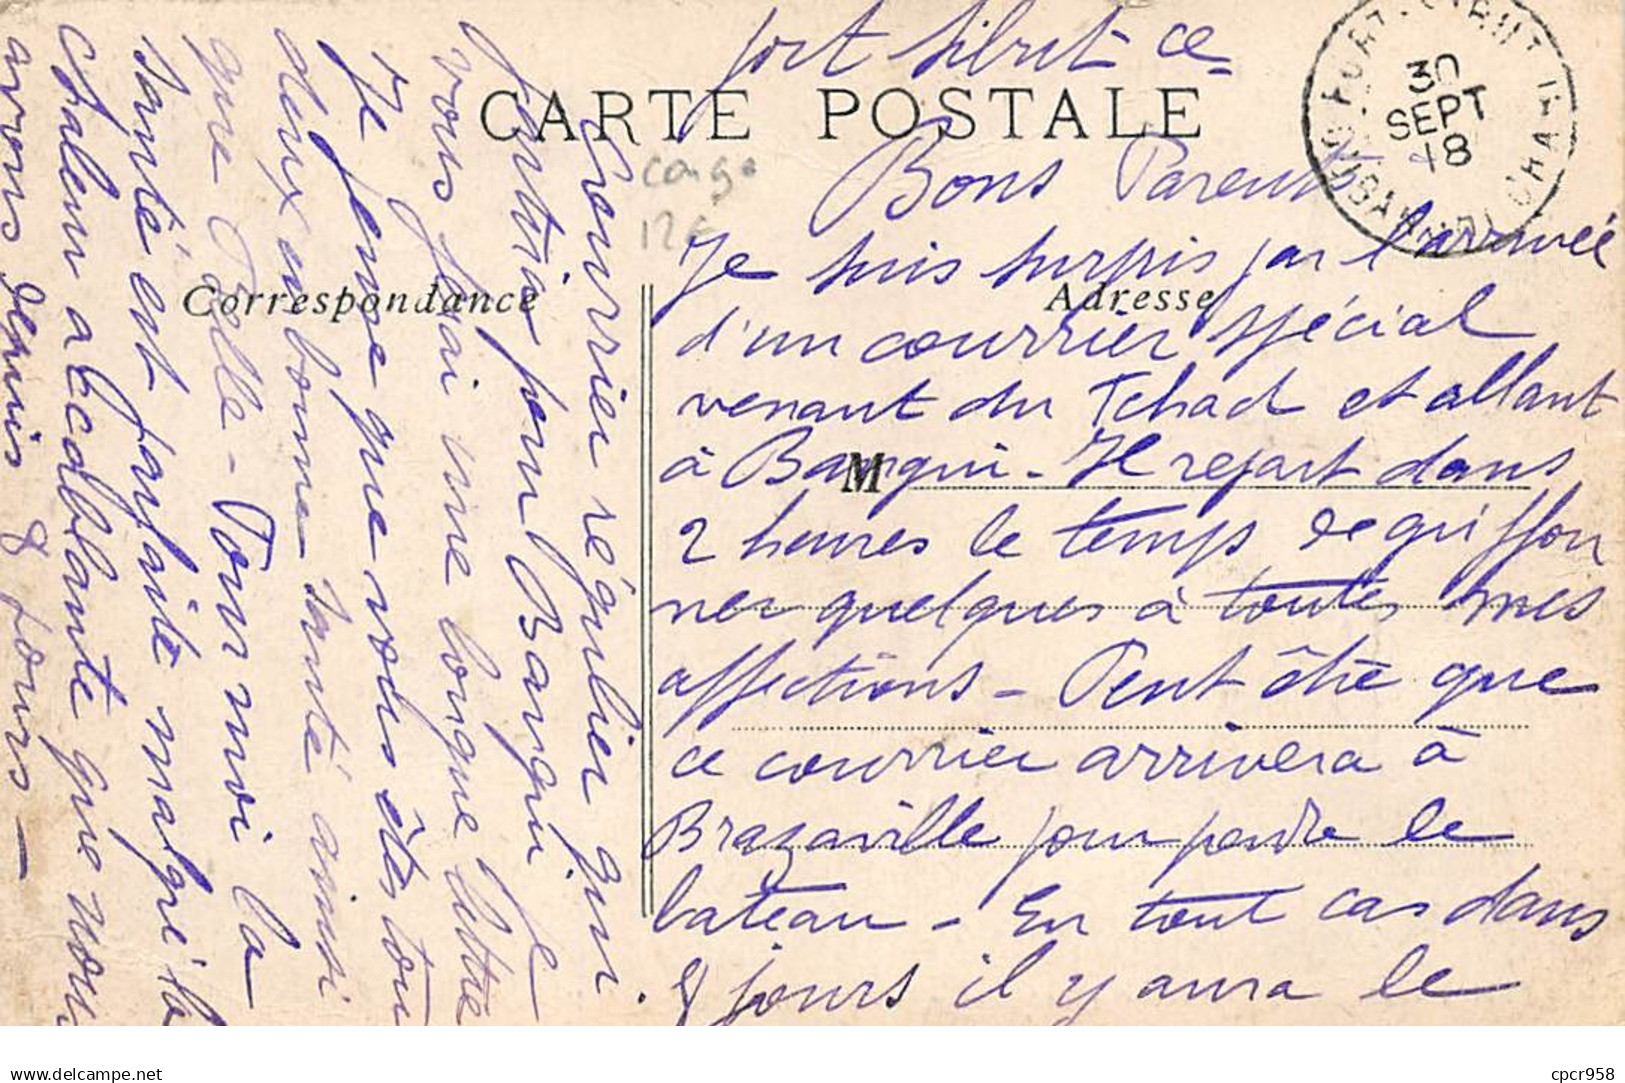 Fort Sibut ce
CARTE POSTALE
30
SEPT
18
Congo
12€
Correspondance
Adresse
M
Bons Parents
Je suis surpris par l'arrivée
d'un courrier spécial
venant du Tchad et allant
à Bangui - Il repart dans
2 heures le temps de griffon
ner quelques à toutes mes
affections - Peut être que
ce courrier arrivera à
Brazaville pour pendre le
bateau - En tout cas dans
8 jours il y aura le
courrier régulier qui
partira pour Bangui. Je
vous ferai une longue lettre
Je pense que vous êtes tou
deux en bonne santé ainsi
que - Pour moi la
santé est parfaite malgré la
chaleur accablante que nous
avons depuis 8 jours -
delcampe.net
cpcr958